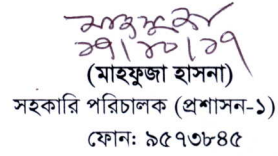 মাহফুজা
২৭/১০/১৭
(মাহফুজা হাসনা)
সহকারি পরিচালক (প্রশাসন-১)
ফোন: ৯৫৭৩৮৪৫